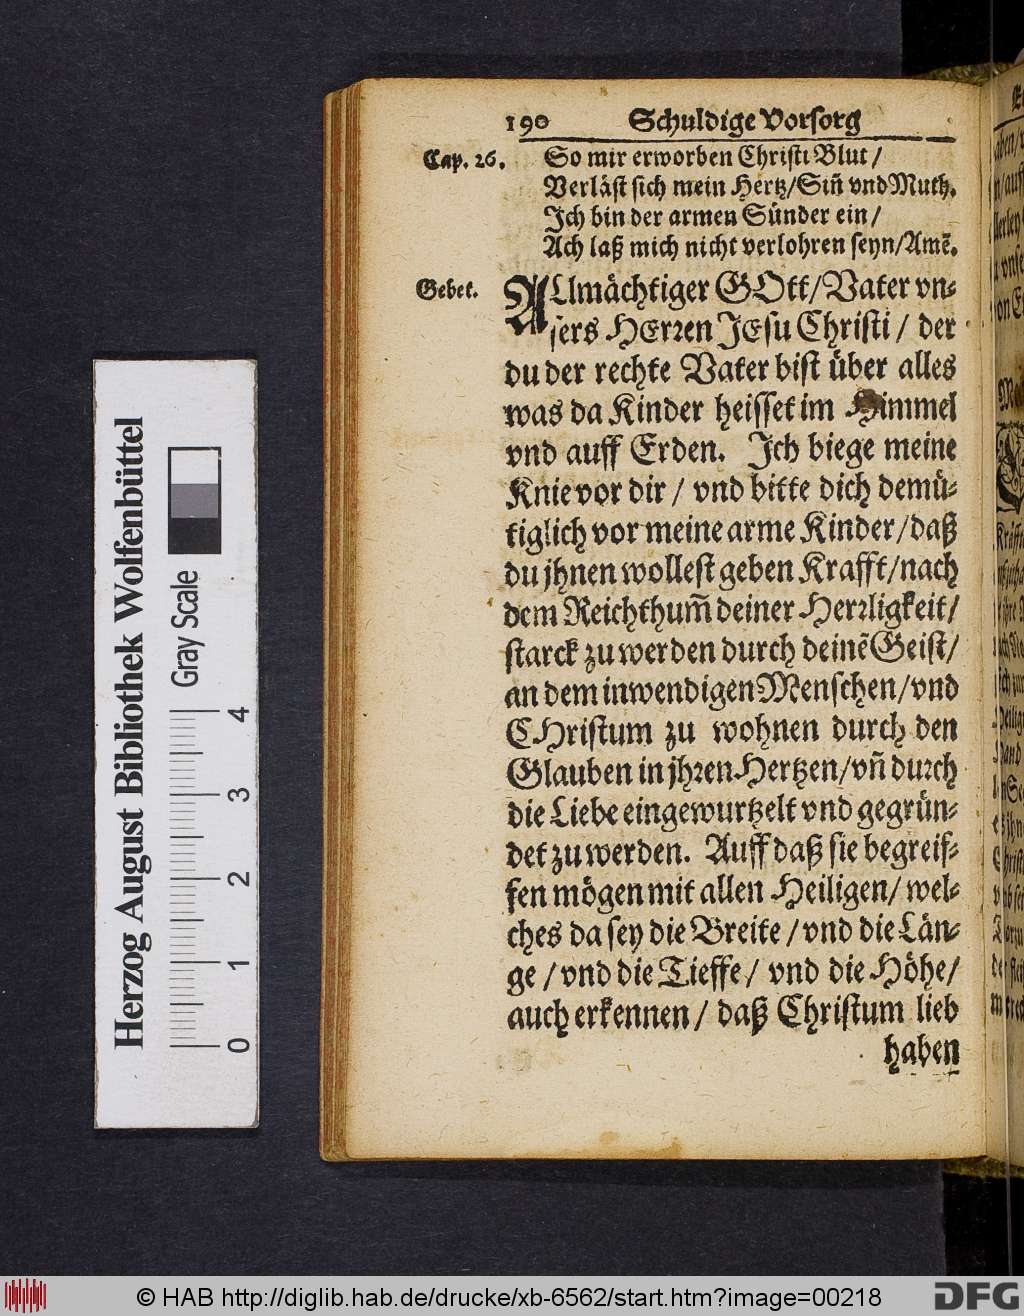 190 Schuldige Vorsorg
Cap. 26. So mir erworben Christi Blut /
Verläst sich mein Hertz/Siñ vnd Muth.
Ich bin der armen Sünder ein /
Ach laß mich nicht verlohren seyn/Amẽ.
Gebet. ALlmächtiger GOtt/Vater vn-
sers HErren JEsu Christi / der
du der rechte Vater bist über alles
was da Kinder heisset im Himmel
vnd auff Erden. Ich biege meine
Knie vor dir / vnd bitte dich demü-
tiglich vor meine arme Kinder/daß
du jhnen wollest geben Krafft/nach
dem Reichthum̃ deiner Herrligkeit/
starck zu werden durch deinẽ Geist/
an dem inwendigen Menschen/vnd
CHristum zu wohnen durch den
Glauben in jhren Hertzen/vñ durch
die Liebe eingewurtzelt vnd gegrün-
det zu werden. Auff daß sie begreif-
fen mögen mit allen Heiligen/ wel-
ches da sey die Breite / vnd die Län-
ge / vnd die Tieffe / vnd die Höhe/
auch erkennen / daß Christum lieb
haben
Herzog August Bibliothek Wolfenbüttel
Gray Scale
0 1 2 3 4
© HAB http://diglib.hab.de/drucke/xb-6562/start.htm?image=00218
DFG